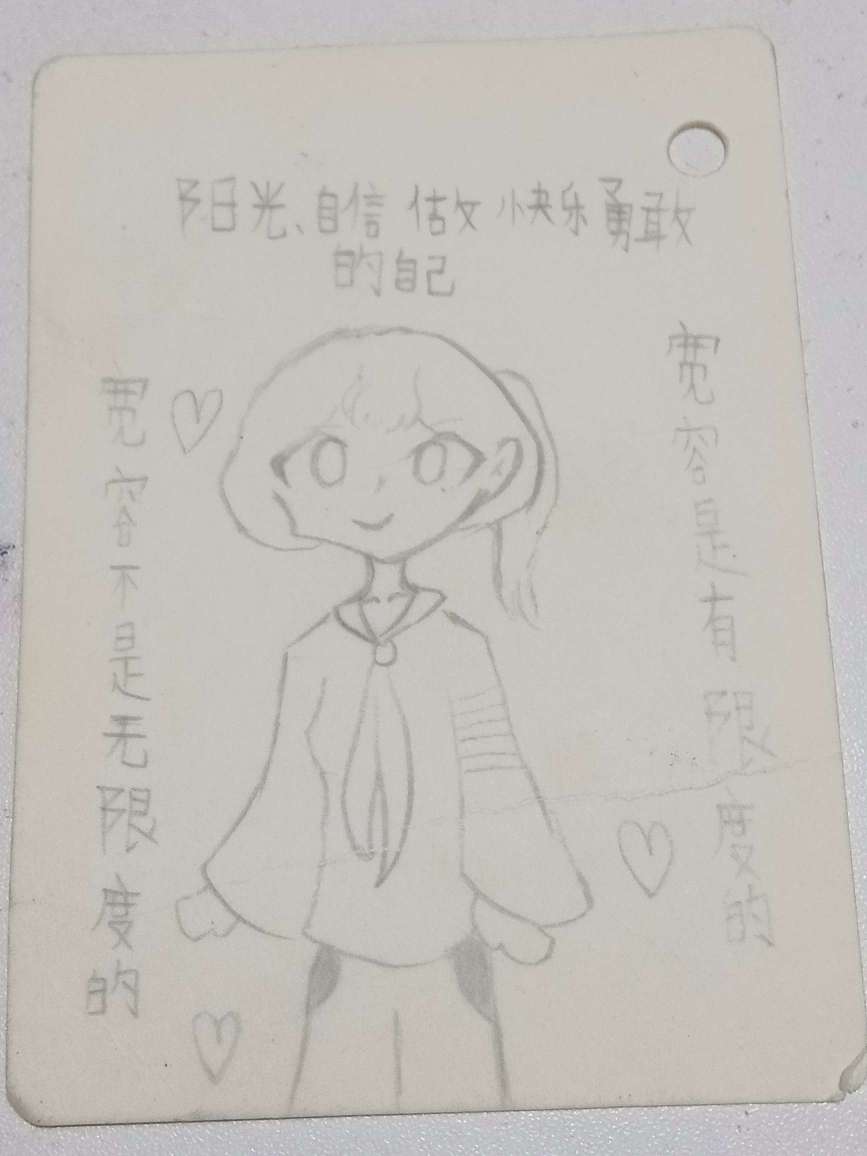 阳光、自信 做 快乐勇敢
的自己
宽容是有限度的
宽容不是无限度的